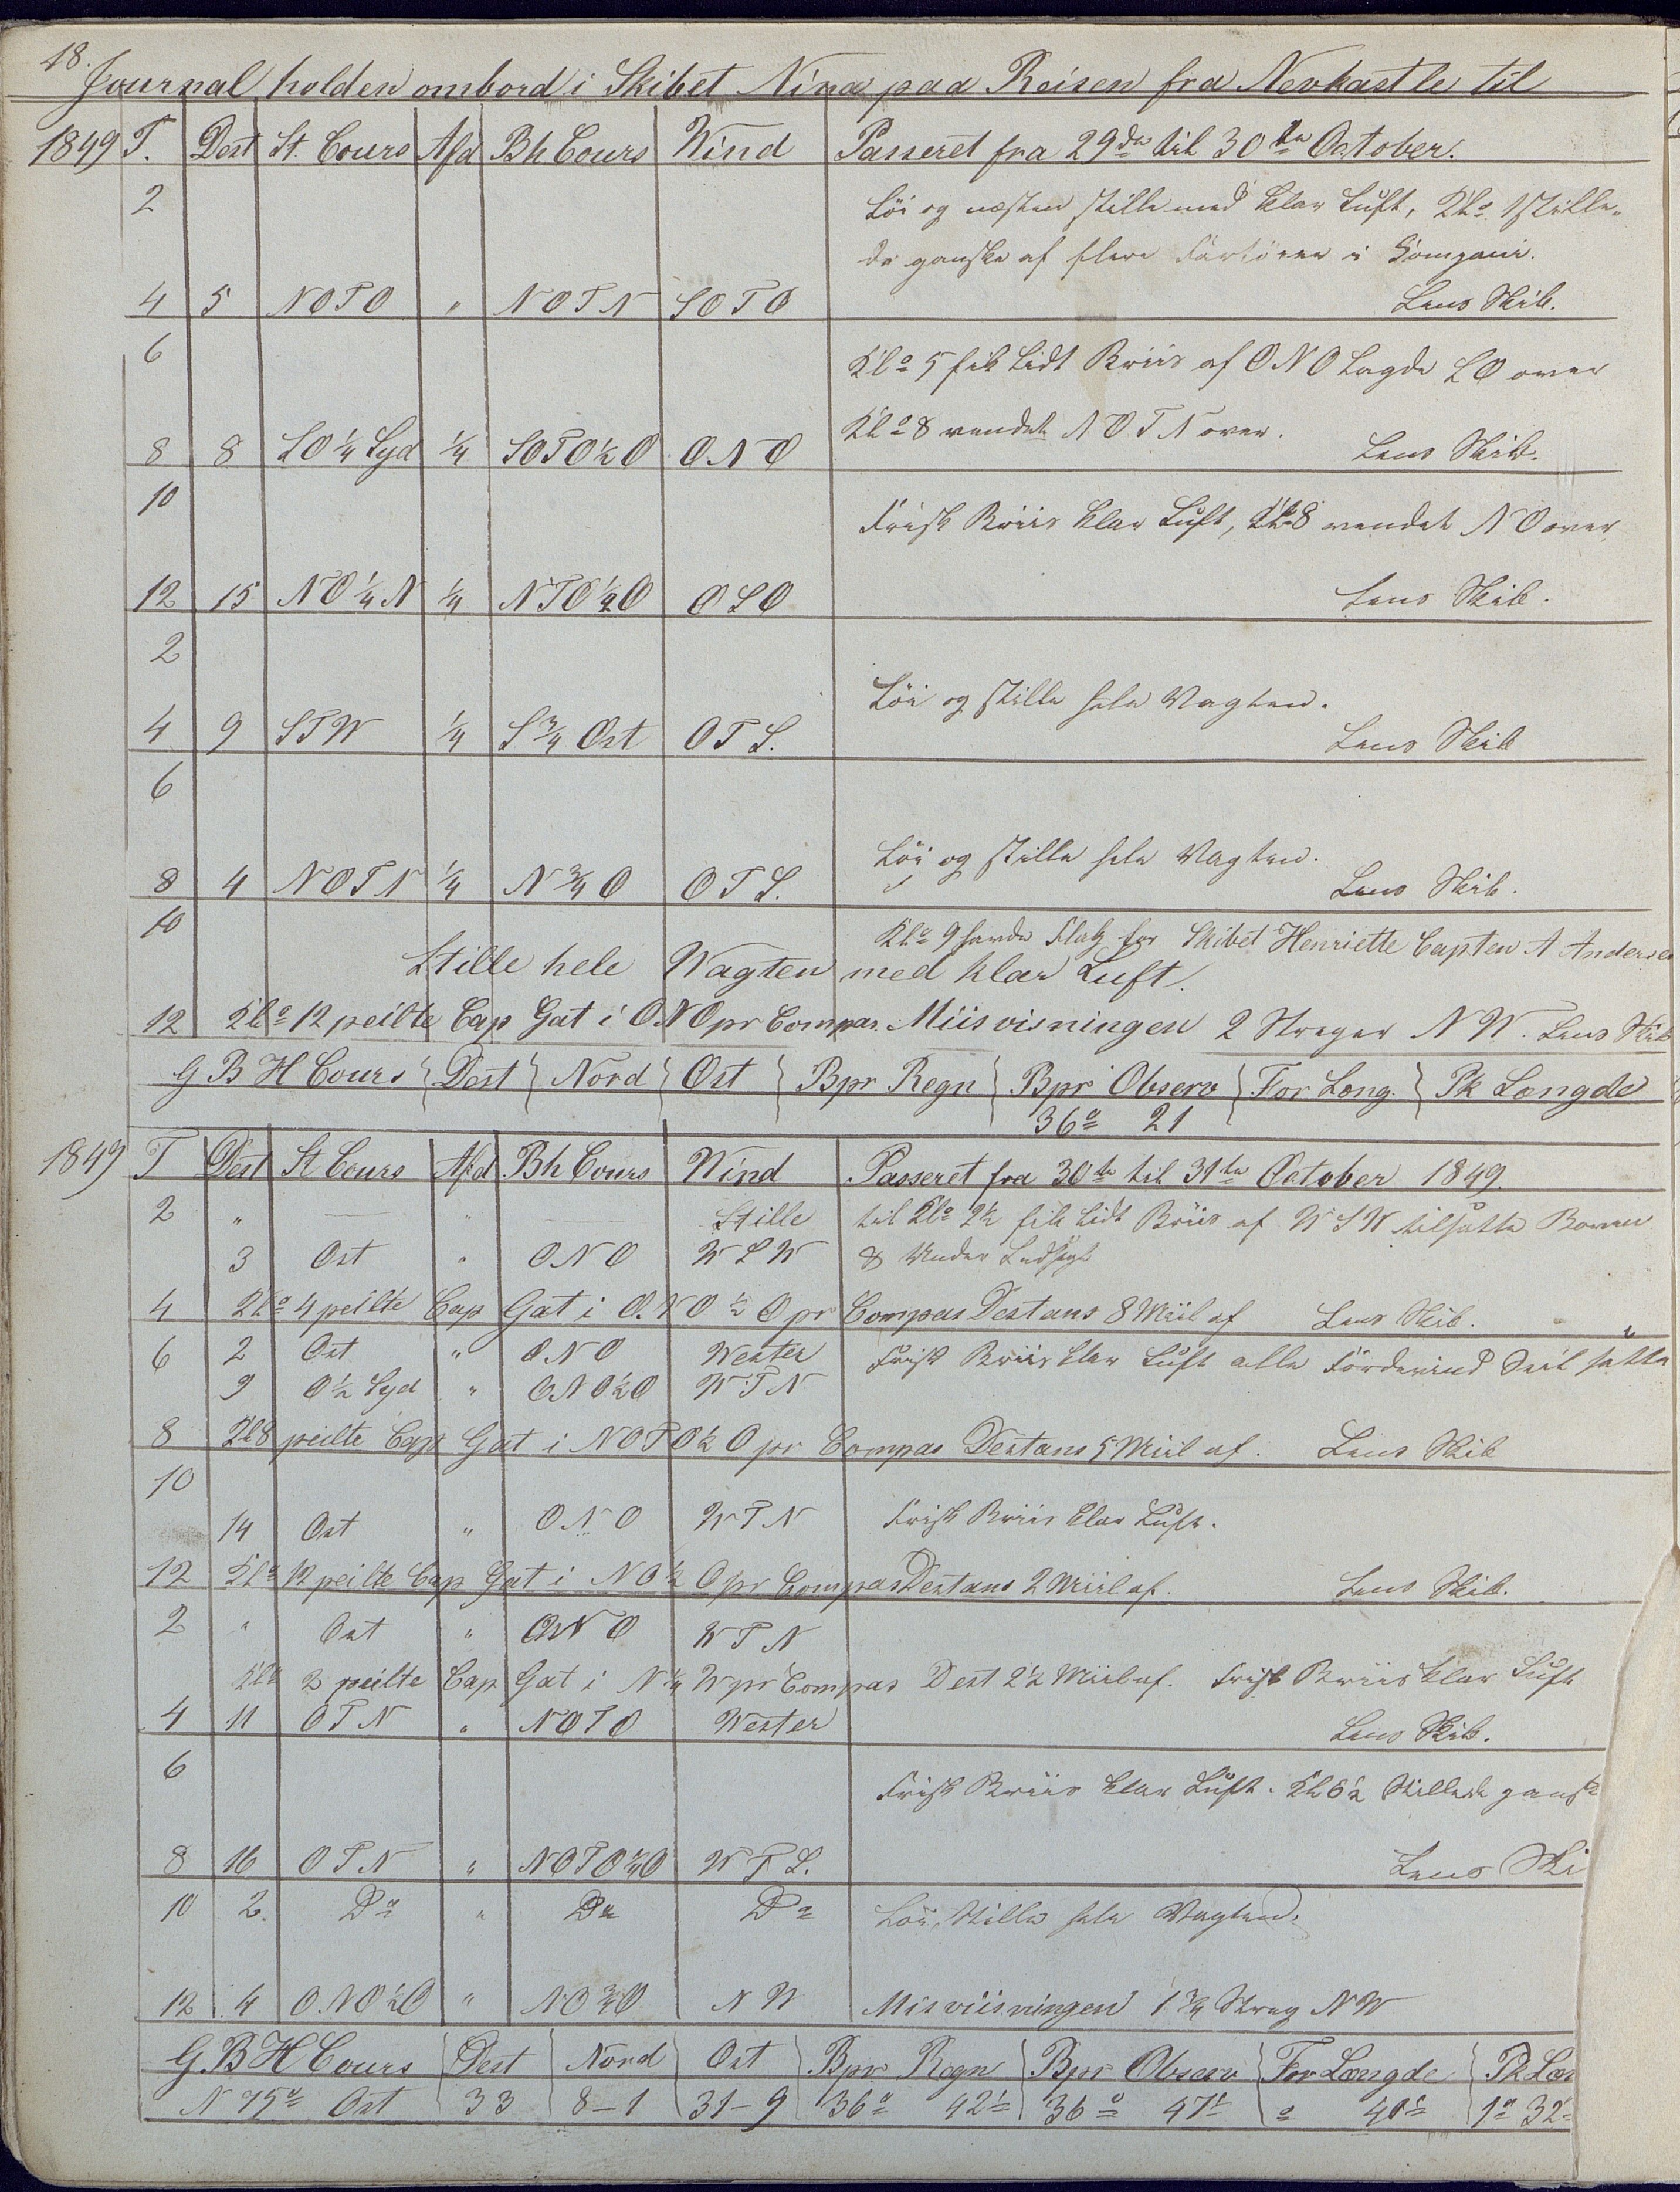 18.
Journal holden ombord i Skibet Nina paa Reisen fra Nevkastle til
1849 T. Dest St. Cours Afd Bh Cours Wind Passeret fra 29de til 30te October.
2 Löi og næsten stille med klar Luft, Klo 1 stille-
de ganske af flere Fartöier i Compani.
4 5 NOTO " NOTN SOTO Lens Skib.
6 Klo 5 fik lidt Briis af ONO Lagde SO over
8 8 SO 1/4 Syd 1/4 SOTO 1/2 O ONO Klo 8 vendet NOTN over. Lens Skib.
10 Frisk Briis klar Luft, Klo 8 vendet NO over
12 15 NO 1/4 N 1/4 NTO 1/2 O OSO Lens Skib.
2
Löi og stille hele Vagten.
4 9 STW 1/4 S 3/4 Ost OTS. Lens Skib
6
Löi og stille hele Vagten.
8 4 NOTN 1/4 N 3/4 O OTS. Lens Skib.
10 Klo 9 havde Flag for Skibet Henriette Capten A Andersen
Stille hele Wagten med klar Luft.
12 Klo 12 peilte Cap Gat i O.NO pr Compas. Miisvisningen 2 Streger NW. Lens Skib
G B H Cours Dest Nord Ost Bpr Regn Bpr Observ For Læng. Pk Længde
36° 21
1849 T Dest St Cours Afd Bh Cours Wind Passeret fra 30te til 31te October 1849.
2 " " Stille til Klo 2 1/2 fik lidt Briis af WSW tilsatte Boven
3 Ost " ONO WSW & Under
4 Klo 4 peilte Cap Gat i O.NO 1/2 O pr Compas Destans 8 Miil af Lens Skib.
6 2 Ost " ONO Wester Frisk Briis klar Luft alle Fördevind Seil satte
9 O 1/2 Syd " ONO 1/2 O WTN
8 Kl 8 peilte Cap Gat i NOTO 1/2 O pr Compas Destans 5 Miil af. Lens Skib
10
14 Ost " ONO WTN Frisk Briis klar Luft.
12 Klo 12 peilte Cap Gat i NO 1/2 O pr Compas Destans 2 Miil af. Lens Skib.
2 " Ost " ONO WTN
Klo 2 peilte Cap Gat i N 1/4 W pr Compas Dest 2 1/2 Miil af. Frisk Briis klar Luft
4 11 OTN " NOTO Wester Lens Skib.
6
Frisk Briis klar Luft. Kl 6 1/2 Stillede gansk
8 16 OTN " NOTO 1/4 O WTS. Lens Ski
10 2. Do " Do Do Löi, Stille hele Vagten.
12 4 ONO 1/2 O " NO 3/4 O NW Misviisningen 1 3/4 Streg NW
G. B H Cours Dest Nord Ost Bpr Regn Bpr Observ For Længde Pk Læn
N 75° Ost 33 8-1 31-9 36° 42' 36° 47' ° 40' 1° 32'